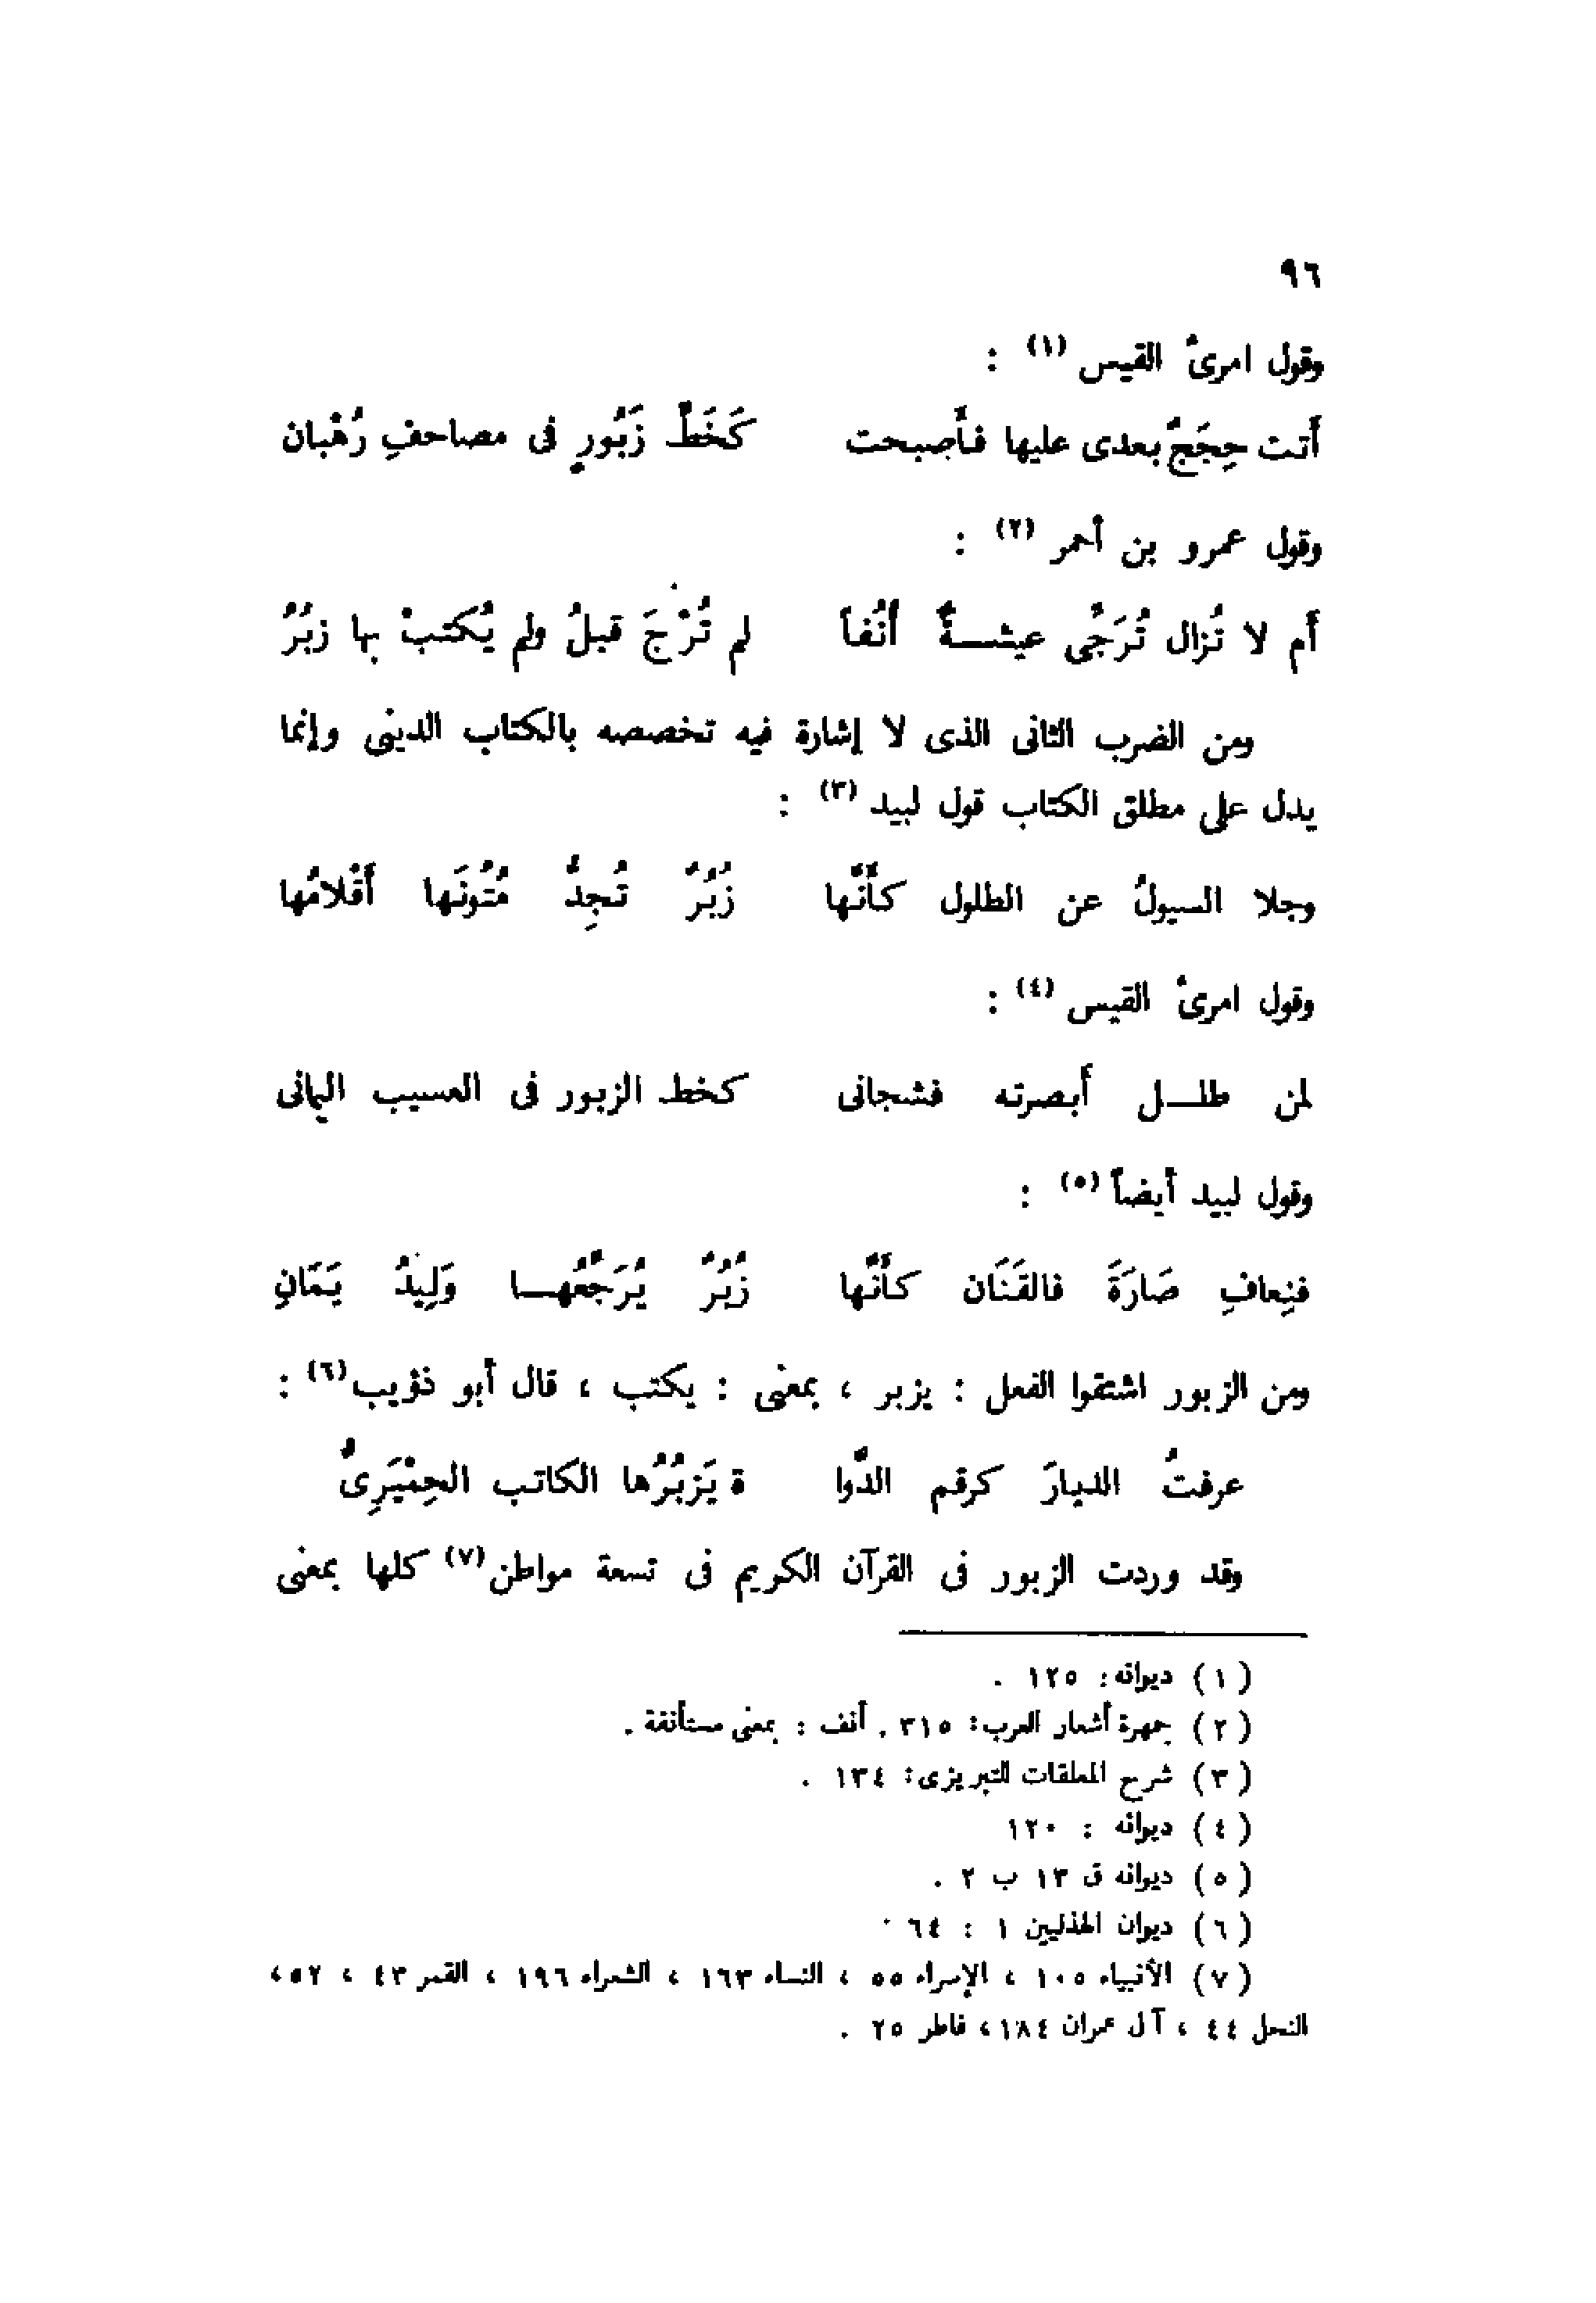 ٩٦
وقول امرئ القيس (١) :
أتت حِجَجٌ بعدى عليها فأصبحت كَخَطِّ زَبُورٍ فى مصاحفِ رُهْبان
وقول عمرو بن أحمر (٢) :
أم لا تُزال تُرَجَّى عيشــةٌ أنُفاً لم تُرْجَ قبلُ ولم يُكتبْ بها زبُرُ
ومن الضرب الثانى الذى لا إشارة فيه تخصصه بالكتاب الدينى وإنما
يدل على مطلق الكتاب قول لبيد (٣) :
وجلا السيولُ عن الطلول كأنَّها زُبُرٌ تُجِدُّ مُتُونَها أَقْلامُها
وقول امرئ القيس (٤) :
لمن طلــل أبصرته فشجانى كخط الزبور فى العسيب اليمانى
وقول لبيد أيضاً (٥) :
فنِعافِ صَارَةَ فالقَنَان كأنَّها زُبُرٌ يُرَجِّعُهــا وَلِيدُ يَمَانِ
ومن الزبور اشتقوا الفعل : يزبر ، بمعنى : يكتب ، قال أبو ذؤيب (٦) :
عرفتُ الديارَ كرقم الدَّوا ة يَزبُرُها الكاتب الحِمْيَرِىُّ
وقد وردت الزبور فى القرآن الكريم فى تسعة مواطن (٧) كلها بمعنى
( ١ ) ديوانه : ١٢٥ .
( ٢ ) جمهرة أشعار العرب : ٣١٥ . أنف : بمعنى مستأنفة .
( ٣ ) شرح المعلقات للتبريزى : ١٣٤ .
( ٤ ) ديوانه : ١٢٠
( ٥ ) ديوانه ق ١٣ ب ٢ .
( ٦ ) ديوان الهذليين ١ : ٦٤ .
( ٧ ) الأنبياء ١٠٥ ، الإسراء ٥٥ ، النساء ١٦٣ ، الشعراء ١٩٦ ، القمر ٤٣ ، ٥٢ ،
النحل ٤٤ ، آل عمران ١٨٤ ، فاطر ٢٥ .